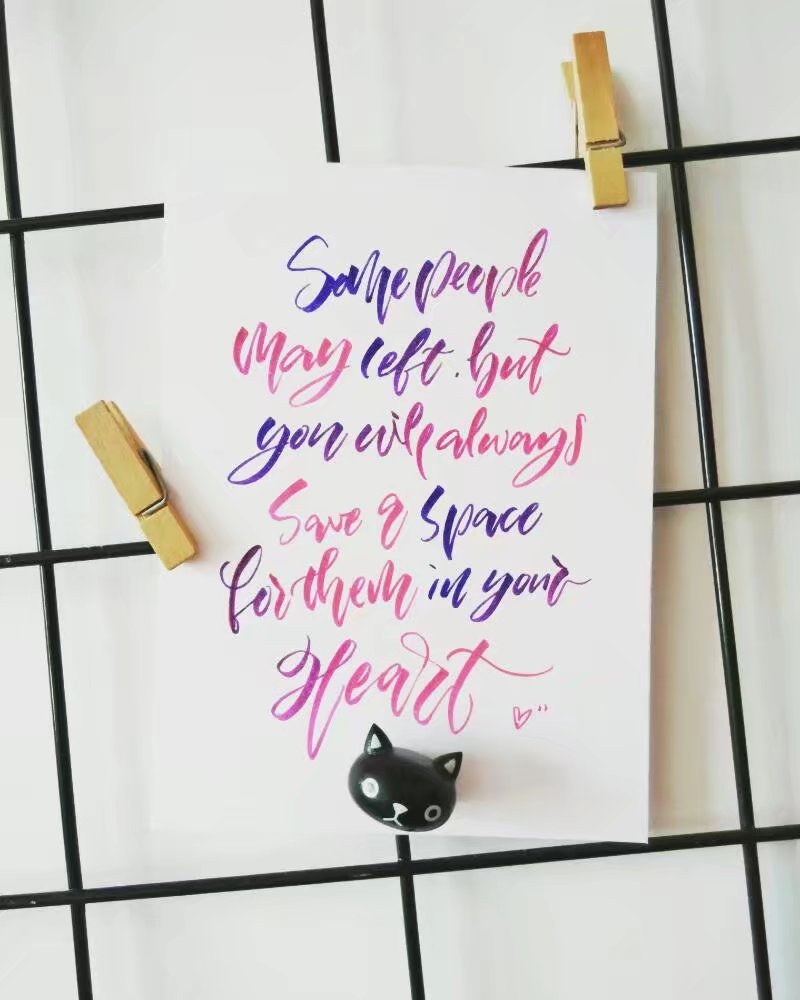 Some people
may left. but
you will always
Save a space
for them in your
Heart